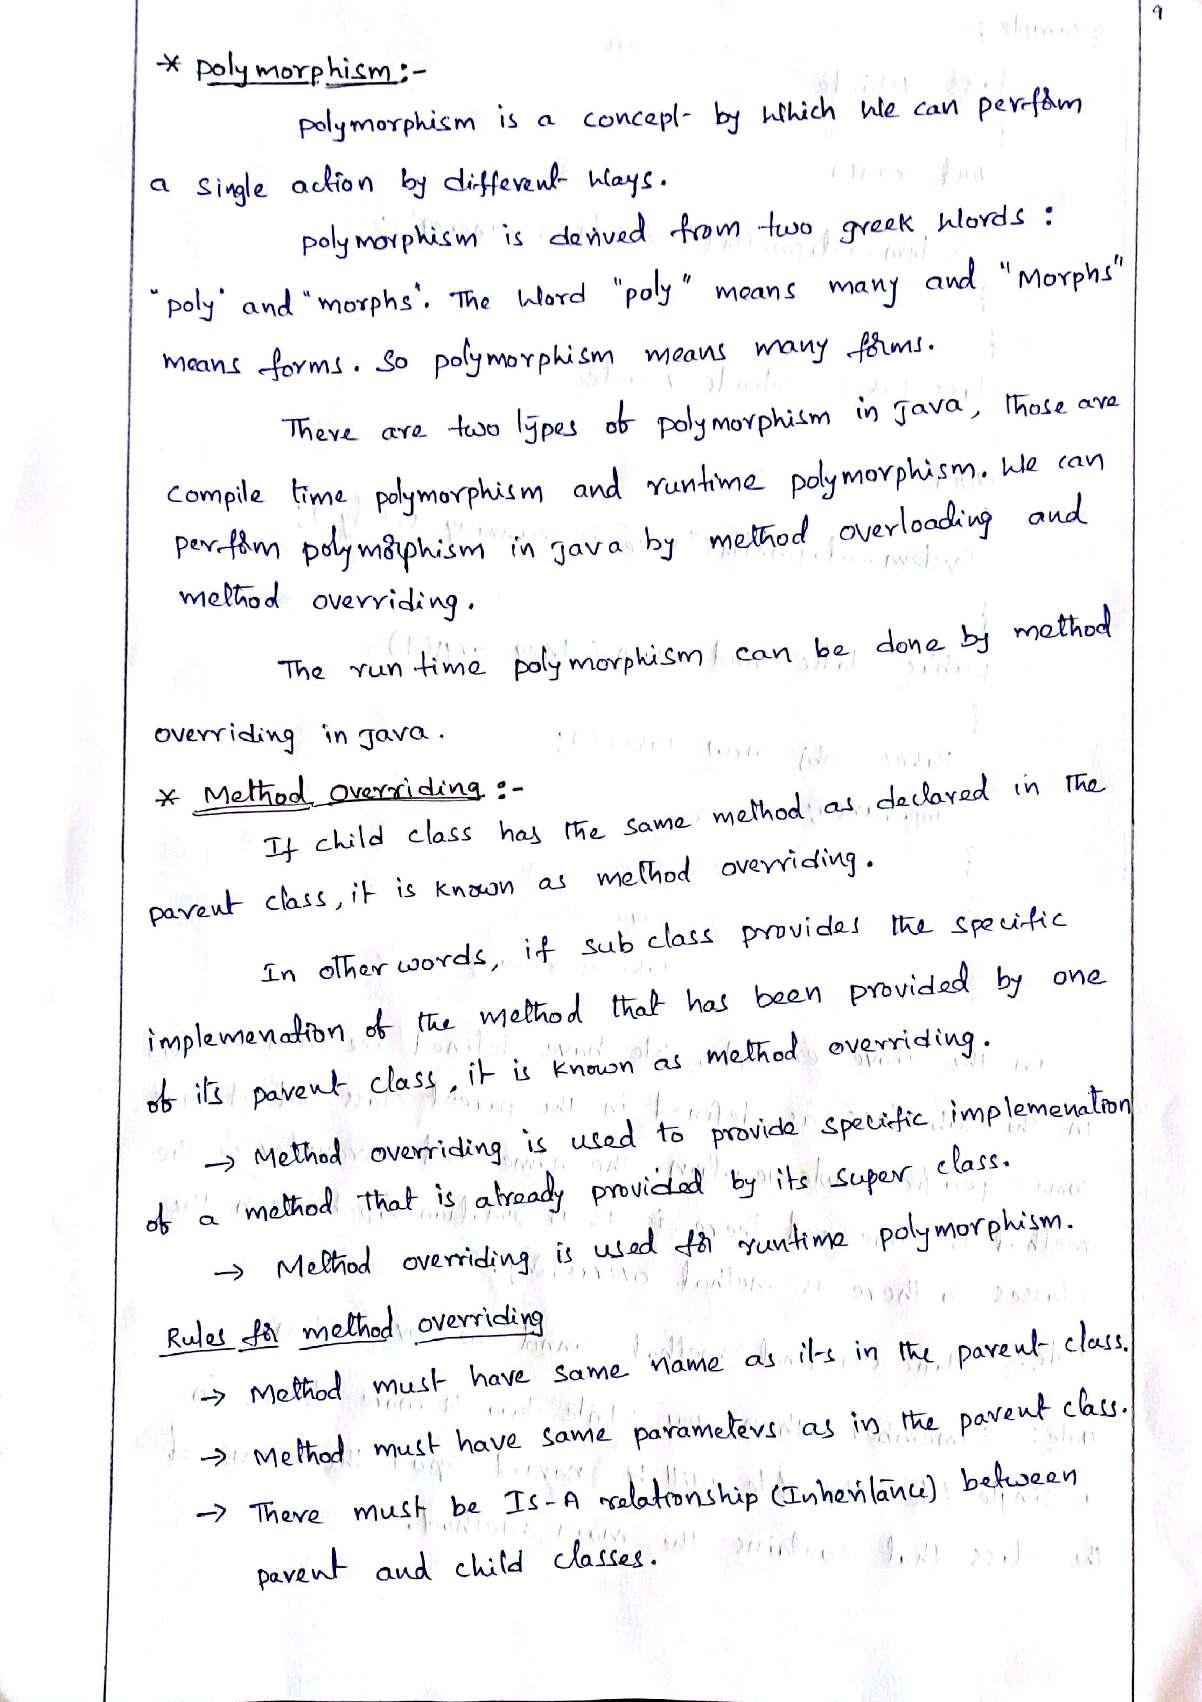 9
* polymorphism :-
polymorphism is a concept by which we can perform
a single action by different ways.
polymorphism is derived from two greek words :
"poly" and "morphs". The word "poly" means many and "Morphs"
means forms. So polymorphism means many forms.
There are two types of polymorphism in java, those are
compile time polymorphism and runtime polymorphism. We can
perform polymorphism in java by method overloading and
method overriding.
The run time polymorphism can be done by method
overriding in java.
* Method overriding :-
If child class has the same method as declared in the
parent class, it is known as method overriding.
In other words, if sub class provides the specific
implemenation of the method that has been provided by one
of its parent class, it is known as method overriding.
→ Method overriding is used to provide specific implemenation
of a method that is already provided by its super class.
→ Method overriding is used for runtime polymorphism.
Rules for method overriding
→ Method must have same name as its in the parent class.
→ Method must have same parameters as in the parent class.
→ There must be IS-A relationship (Inheritance) between
parent and child classes.